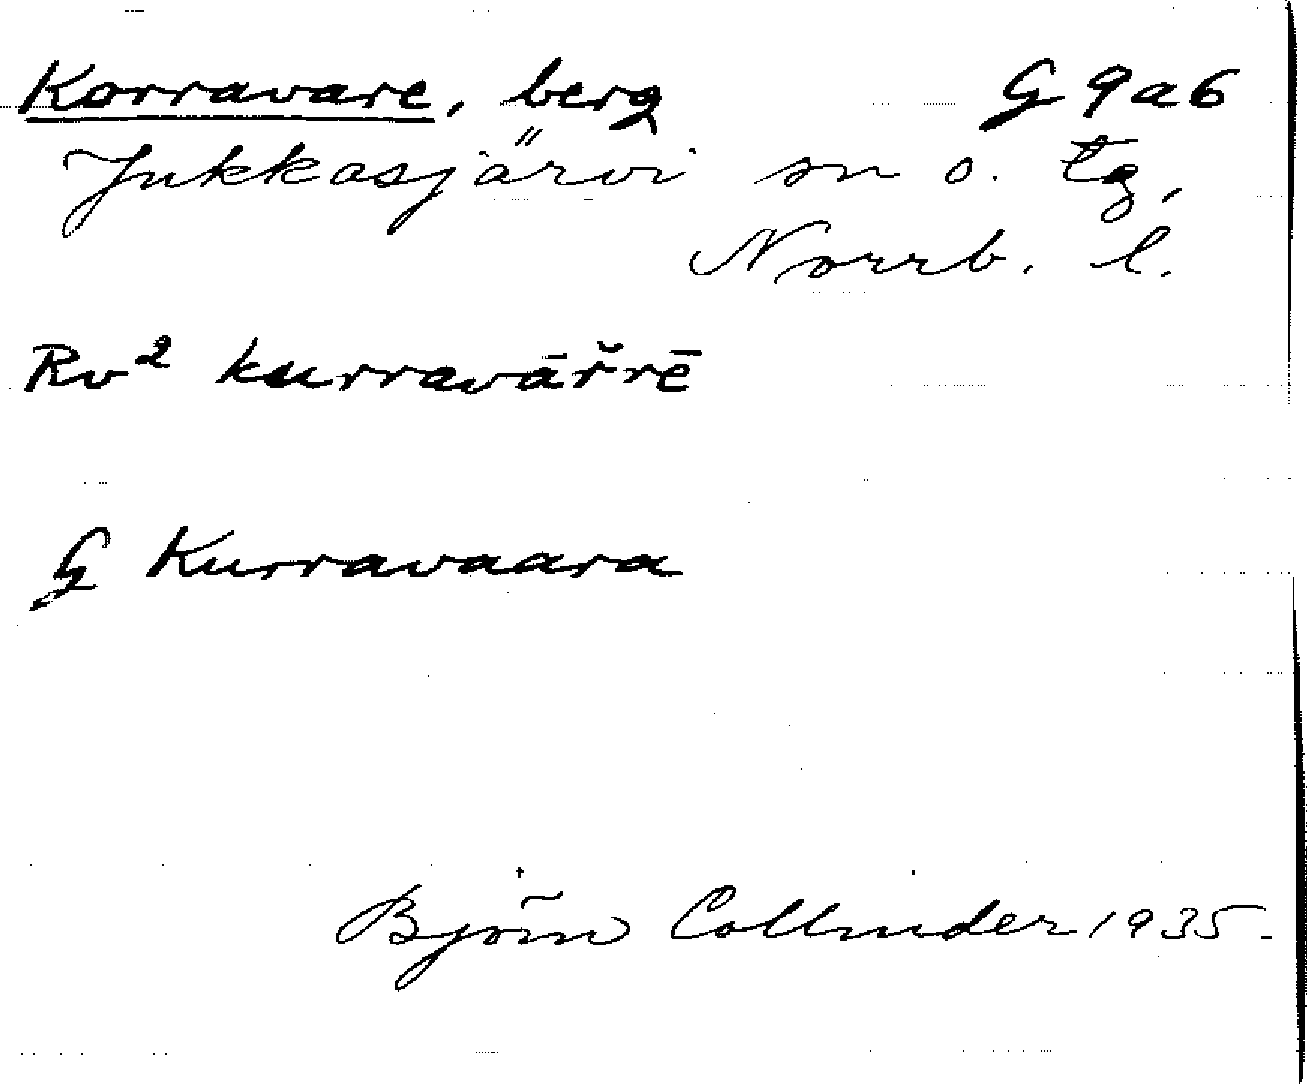 Korravare, berg G 9 a 6
Jukkasjärvi sn o. tg,
Norrb. l.
Rv² kurravāřrē
G Kurravaara
Björn Collinder 1935.